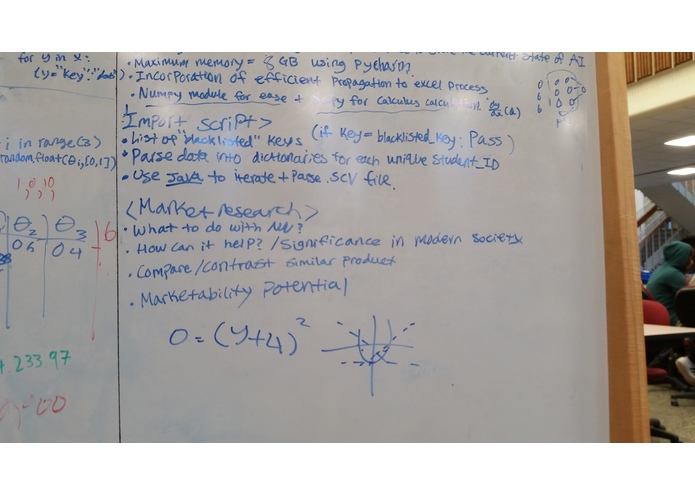 for y in x:
(y="key":
i in range(3)
random.float(θi,[0,1])
1,0,10
θ2 θ3
0.4
6
233.97
00
the current state of AI
• Maximum memory= GB using Pycharm
• Incorporation of efficient propagation to excel process
• Numpy module for ease + for calculus
Import script>
• List of "blacklisted" keys (if key= blacklisted_key: Pass)
• Parse data into dictionaries for each unique student_ID
• Use Java to iterate + Parse .SCV file.
<Market research>
• What to do with NN?
• How can it help? /Significance in modern society
• Compare/contrast similar product
• Marketability potential
0 = (y+4)²